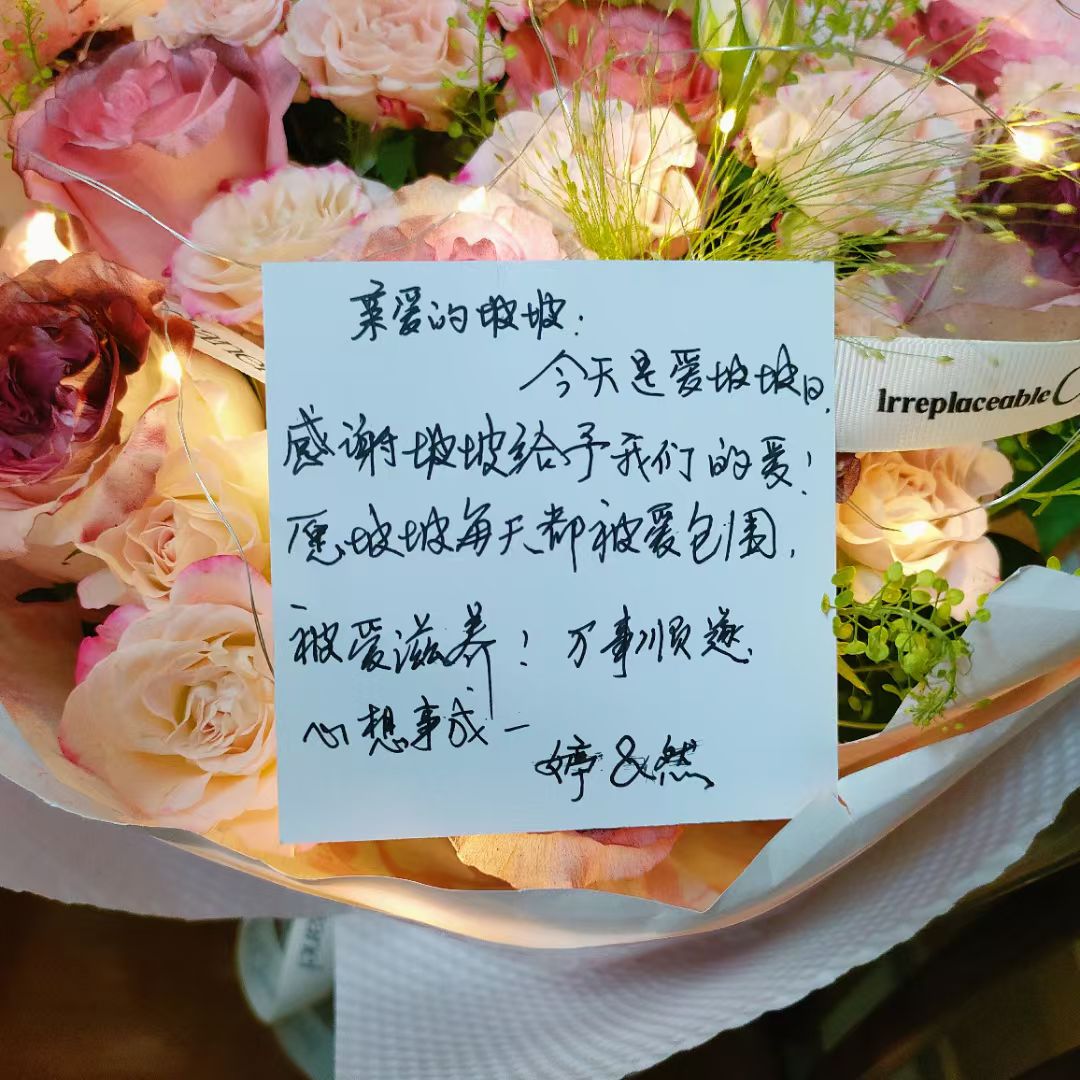 亲爱的坡坡：
今天是爱坡坡日，
感谢坡坡给予我们的爱！
愿坡坡每天都被爱包围，
被爱滋养！万事顺遂
心想事成—
婷&然
Irreplaceable